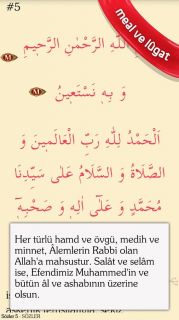 #5
meal ve lügat
اللّٰهِ الرَّحْمٰنِ الرَّحِيمِ
وَ بِهِ نَسْتَعِينُ
اَلْحَمْدُ لِلّٰهِ رَبِّ الْعَالَمِينَ وَ
الصَّلَاةُ وَ السَّلَامُ عَلٰى سَيِّدِنَا
مُحَمَّدٍ وَ عَلٰى اٰلِهِ وَ صَحْبِهِ
Her türlü hamd ve övgü, medih ve
minnet, Âlemlerin Rabbi olan
Allah'a mahsustur. Salât ve selâm
ise, Efendimiz Muhammed'in ve
bütün âl ve ashabının üzerine
olsun.
Sözler 5 - SÖZLER